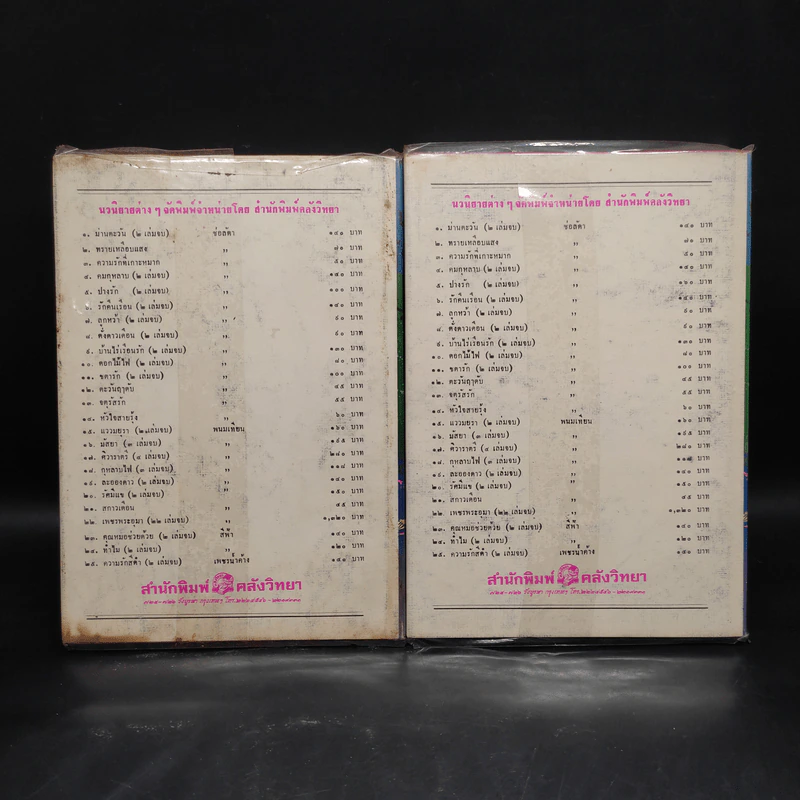 นวนิยายต่าง ๆ จัดพิมพ์จำหน่ายโดย สำนักพิมพ์คลังวิทยา
๑. ม่านตะวัน (๒ เล่มจบ) ช่อลัดา ๑๔๐ บาท
๒. พรายเหลือบแสง ,, ๗๐ บาท
๓. ความรักที่เกาะหมาก ,, ๕๐ บาท
๔. คมกุหลาบ (๒ เล่มจบ) ,, ๑๕๐ บาท
๕. ปางรัก (๒ เล่มจบ) ,, บาท
๖. รักคืนเรือน (๒ เล่มจบ) ,, ๑๔๐ บาท
๗. ลูกหว้า (๒ เล่มจบ) ,, ๙๐ บาท
๘. ตั้งดาวเดือน (๒ เล่มจบ) ,, ๙๐ บาท
๙. บ้านไร่เรือนรัก (๒ เล่มจบ) ,, ๑๓๐ บาท
๑๐. ดอกไม้ไฟ (๒ เล่มจบ) ,, ๘๐ บาท
๑๑. ชตารัก (๒ เล่มจบ) ,, ๑๐๐ บาท
๑๒. ตะวันฤๅดับ ,, ๔๕ บาท
๑๓. จตุรัสรัก ,, ๕๕ บาท
๑๔. หัวใจสายรุ้ง ,, ๖๐ บาท
๑๕. แววมยุรา (๒ เล่มจบ) พนมเทียน ๑๖๐ บาท
๑๖. มัสยา (๓ เล่มจบ) ,, ๑๔๕ บาท
๑๗. ศิวาราตรี (๔ เล่มจบ) ,, ๒๘๐ บาท
๑๘. กุหลาบไฟ (๓ เล่มจบ) ,, บาท
๑๙. ละอองดาว (๒ เล่มจบ) ,, ๑๔๐ บาท
๒๐. รัศมีแข (๒ เล่มจบ) ,, ๑๕๐ บาท
๒๑. สกาวเดือน ,, ๔๕ บาท
๒๒. เพชรพระอุมา (๒๒ เล่มจบ) ,, ๑,๓๒๐ บาท
๒๓. คุณหมอช่วยด้วย (๒ เล่มจบ) สีฟ้า ๑๔๐ บาท
๒๔. ทำไม (๒ เล่มจบ) ,, ๑๒๐ บาท
๒๕. ความรักสีดำ (๒ เล่มจบ) เพชรน้ำค้าง ๑๕๐ บาท
สำนักพิมพ์ คลังวิทยา
นวนิยายต่าง ๆ จัดพิมพ์จำหน่ายโดย สำนักพิมพ์คลังวิทยา
๑. ม่านตะวัน (๒ เล่มจบ) ช่อลัดา ๑๔๐ บาท
๒. พรายเหลือบแสง ,, ๗๐ บาท
๓. ความรักที่เกาะหมาก ,, ๕๐ บาท
๔. คมกุหลาบ (๒ เล่มจบ) ,, ๑๕๐ บาท
๕. ปางรัก (๒ เล่มจบ) ,, บาท
๖. รักคืนเรือน (๒ เล่มจบ) ,, ๑๔๐ บาท
๗. ลูกหว้า (๒ เล่มจบ) ,, ๙๐ บาท
๘. ตั้งดาวเดือน (๒ เล่มจบ) ,, ๙๐ บาท
๙. บ้านไร่เรือนรัก (๒ เล่มจบ) ,, ๑๓๐ บาท
๑๐. ดอกไม้ไฟ (๒ เล่มจบ) ,, ๘๐ บาท
๑๑. ชตารัก (๒ เล่มจบ) ,, ๑๐๐ บาท
๑๒. ตะวันฤๅดับ ,, ๔๕ บาท
๑๓. จตุรัสรัก ,, ๕๕ บาท
๑๔. หัวใจสายรุ้ง ,, ๖๐ บาท
๑๕. แววมยุรา (๒ เล่มจบ) พนมเทียน ๑๖๐ บาท
๑๖. มัสยา (๓ เล่มจบ) ,, ๑๔๕ บาท
๑๗. ศิวาราตรี (๔ เล่มจบ) ,, ๒๘๐ บาท
๑๘. กุหลาบไฟ (๓ เล่มจบ) ,, บาท
๑๙. ละอองดาว (๒ เล่มจบ) ,, ๑๔๐ บาท
๒๐. รัศมีแข (๒ เล่มจบ) ,, ๑๕๐ บาท
๒๑. สกาวเดือน ,, ๔๕ บาท
๒๒. เพชรพระอุมา (๒๒ เล่มจบ) ,, ๑,๓๒๐ บาท
๒๓. คุณหมอช่วยด้วย (๒ เล่มจบ) สีฟ้า ๑๔๐ บาท
๒๔. ทำไม (๒ เล่มจบ) ,, ๑๒๐ บาท
๒๕. ความรักสีดำ (๒ เล่มจบ) เพชรน้ำค้าง ๑๕๐ บาท
สำนักพิมพ์ คลังวิทยา